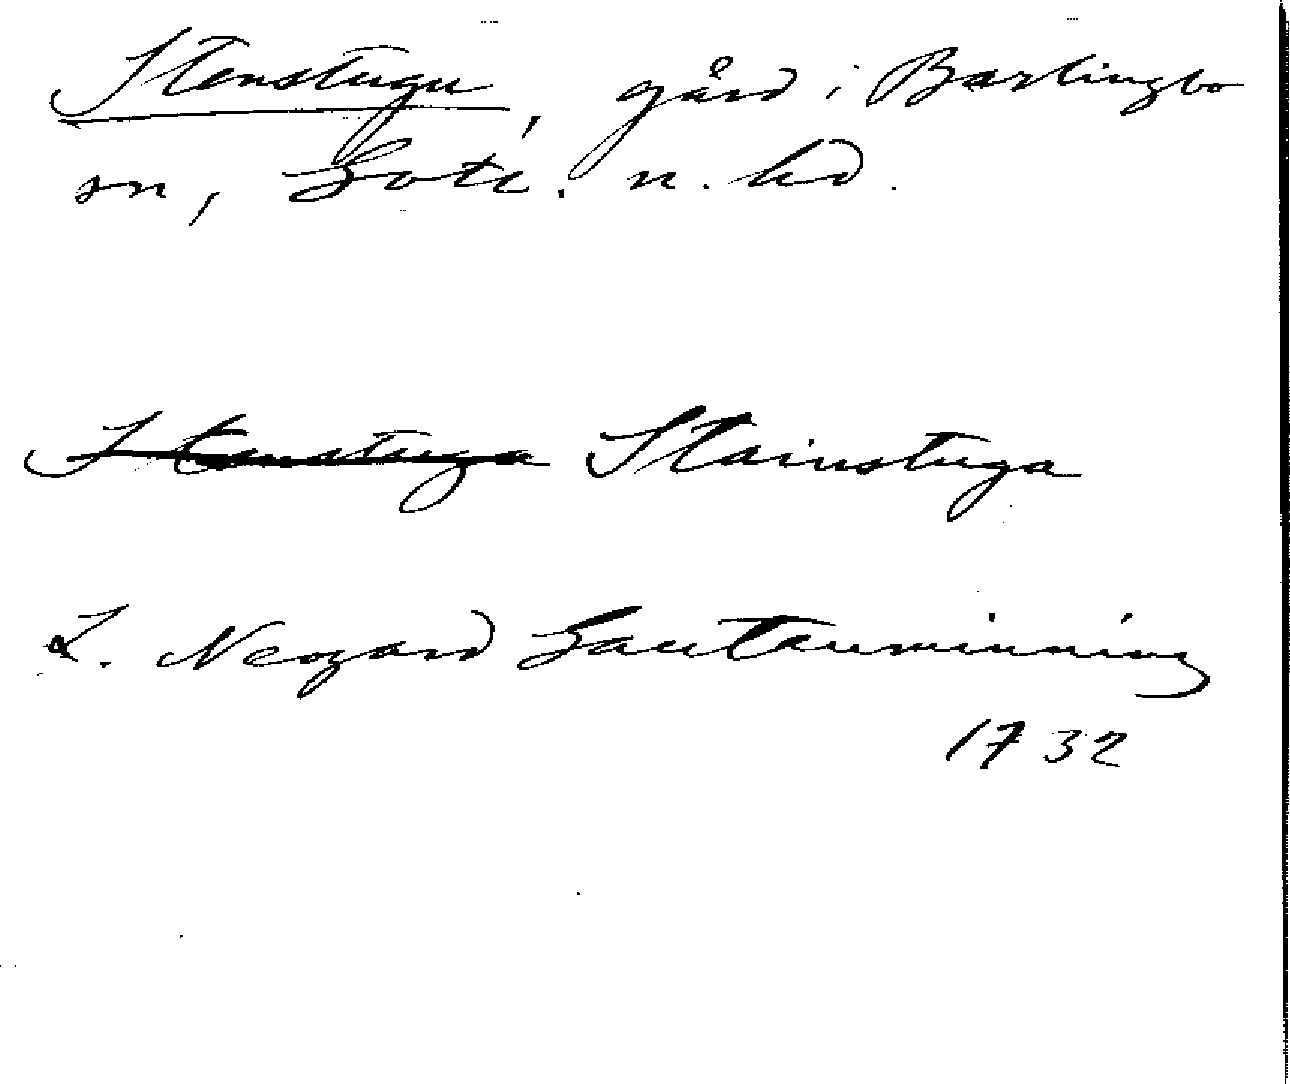 Stenstugu, gård i Barlingbo
sn, Gotl. n. hd.
Stenstuga Stainstuga
L. Neogard Gautauminning
1732